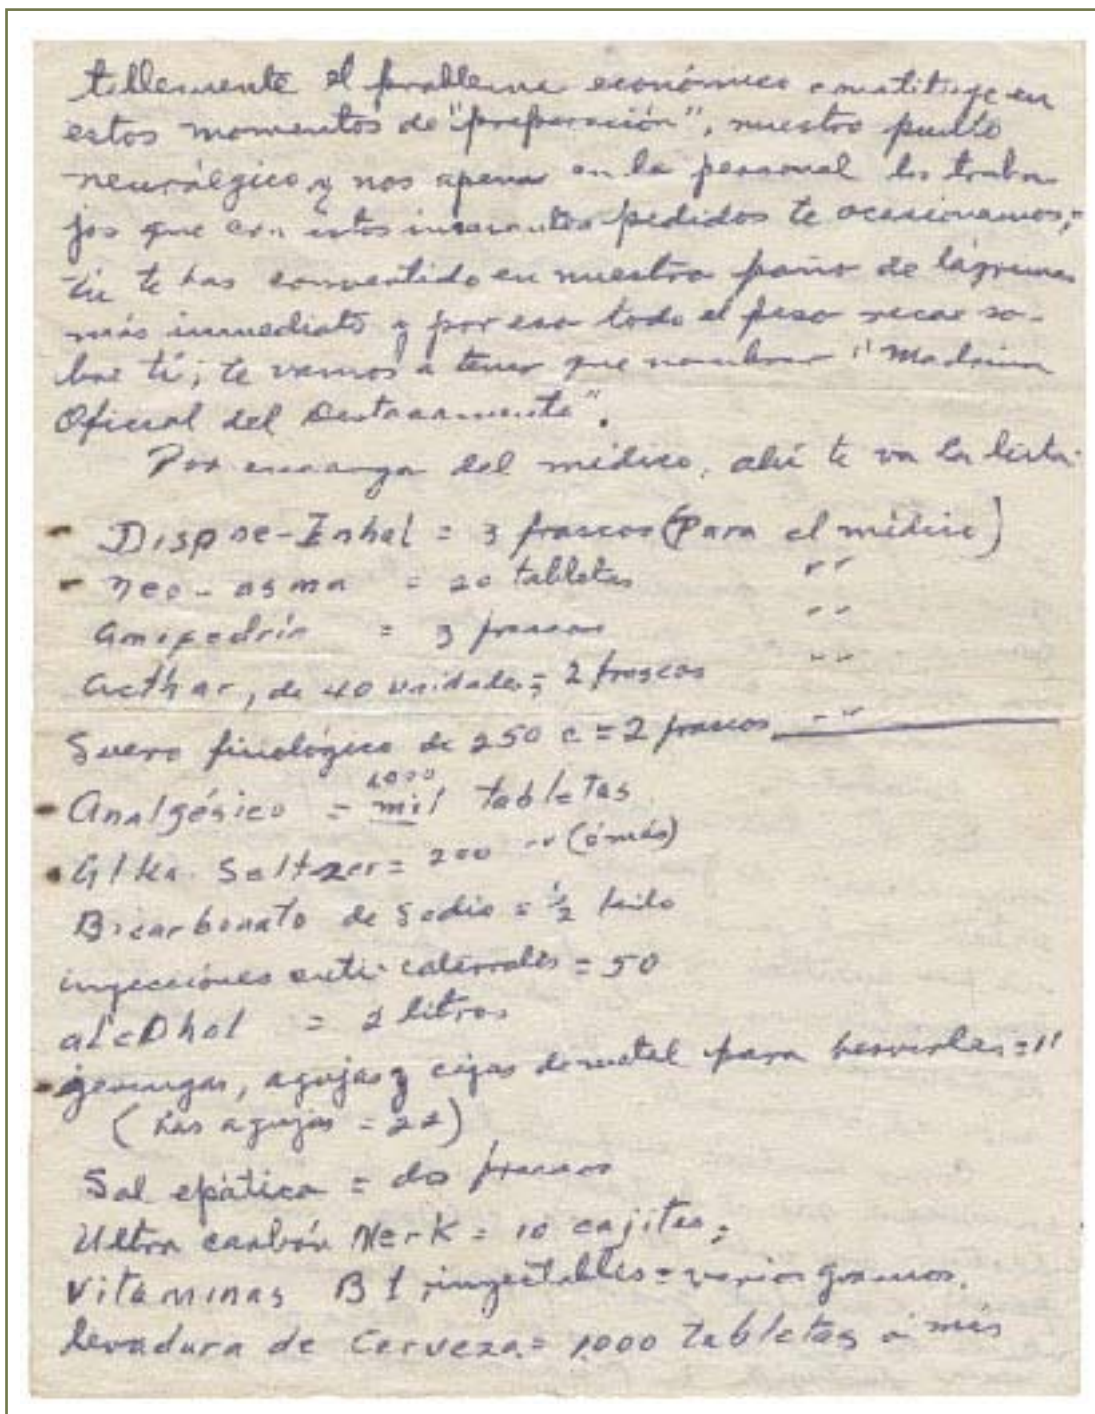 tablemente el problema económico constituye en
estos momentos de "preparación", nuestro punto
neurálgico, y nos apena en lo personal los traba-
jos que con estos incesantes pedidos te ocasionamos;
tú te has convertido en nuestro paño de lágrimas
más inmediato y por eso todo el peso recae so-
bre tí; te vamos a tener que nombrar "Madrina
Oficial del Destacamento".
Por encargo del médico, ahí te va la lista:
- Dispne-Inhal = 3 frascos (Para el médico)
- Neo-asma = 20 tabletas " "
Amifedrín = 3 frascos " "
Acthar, de 40 unidades = 2 frascos " "
Suero fisiológico de 250 c = 2 frascos " "
- Analgésico = mil tabletas
1000
- Alka-Seltzer = 200 " " (ó más)
Bicarbonato de Sodio = ½ kilo
inyecciones anti-catarrales = 50
alcohol = 2 litros
- geringas, agujas y cajas de metal para hervirlas =
(Las agujas = 22)
Sal epática = dos frascos
Ultra carbón Merk = 10 cajitas;
Vitaminas B1 inyectables = varios gramos.
Levadura de Cerveza = 1000 tabletas ó más